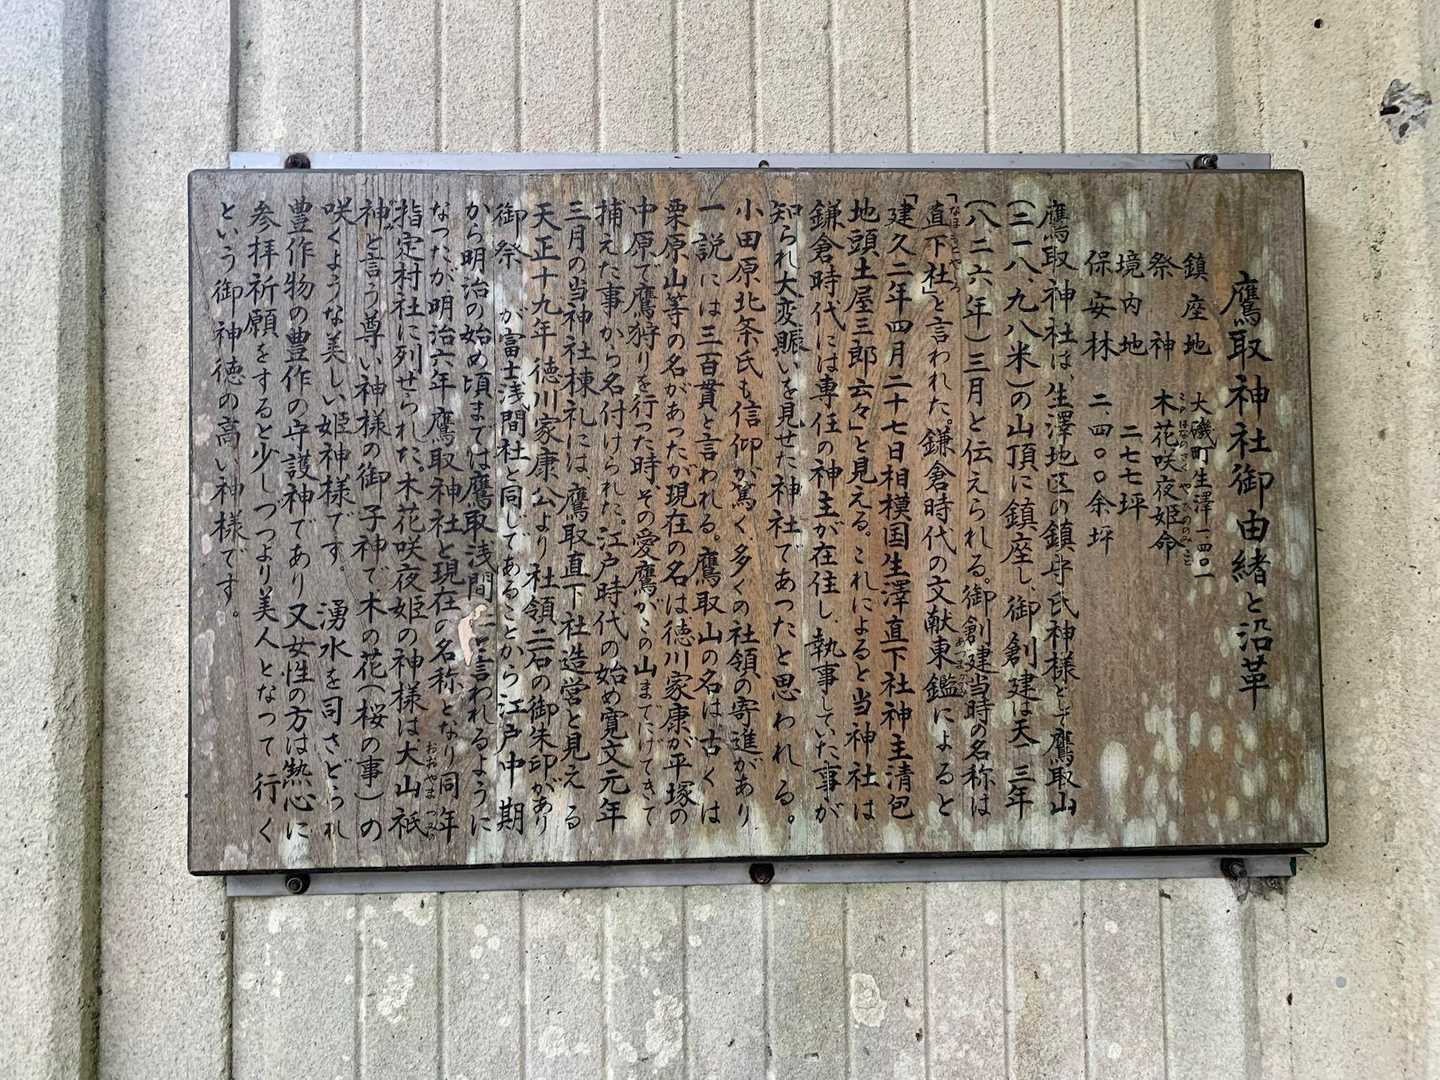 鷹取神社御由緒と沿革
鎮座地　大磯町生澤一四〇一
祭神　木花咲夜姫命
境内地　二七七坪
保安林　二、四〇〇余坪
鷹取神社は、生澤地区の鎮守氏神様として鷹取山
(二一八、九八米)の山頂に鎮座し、御創建は天長三年
(八二六年)三月と伝えられる。御創建当時の名称は
「直下社」と言われた。鎌倉時代の文献東鑑によると
「建久二年四月二十七日相模国生澤直下社神主清包
地頭土屋三郎云々」と見える。これによると当神社は
鎌倉時代には専任の神主が在住し、執事していた事が
知られ大変賑いを見せた神社であつたと思われる。
小田原北条氏も信仰が篤く、多くの社領の寄進があり
一説には三百貫と言われる。鷹取山の名は、古くは
栗原山等の名があつたが現在の名は徳川家康が平塚の
中原で鷹狩りを行つた時、その愛鷹がこの山までにげてきて
捕えた事から名付けられた。江戸時代の始め寛文元年
三月の当神社棟礼には、鷹取直下社造営と見える
天正十九年徳川家康公より社領二石の御朱印があり
御祭　が富士浅間社と同じであることから江戸中期
から明治の始め頃までは鷹取浅間　と言われるように
なつたが明治六年鷹取神社と現在の名称となり同年
指定村社に列せられた。木花咲夜姫の神様は大山祇
神と言う尊い神様の御子神で木の花(桜の事)の
咲くような美しい姫神様です。　湧水を司さどられ
豊作物の豊作の守護神であり又女性の方は熱心に
参拝祈願をすると少しづつより美人となつて行く
という御神徳の高い神様です。